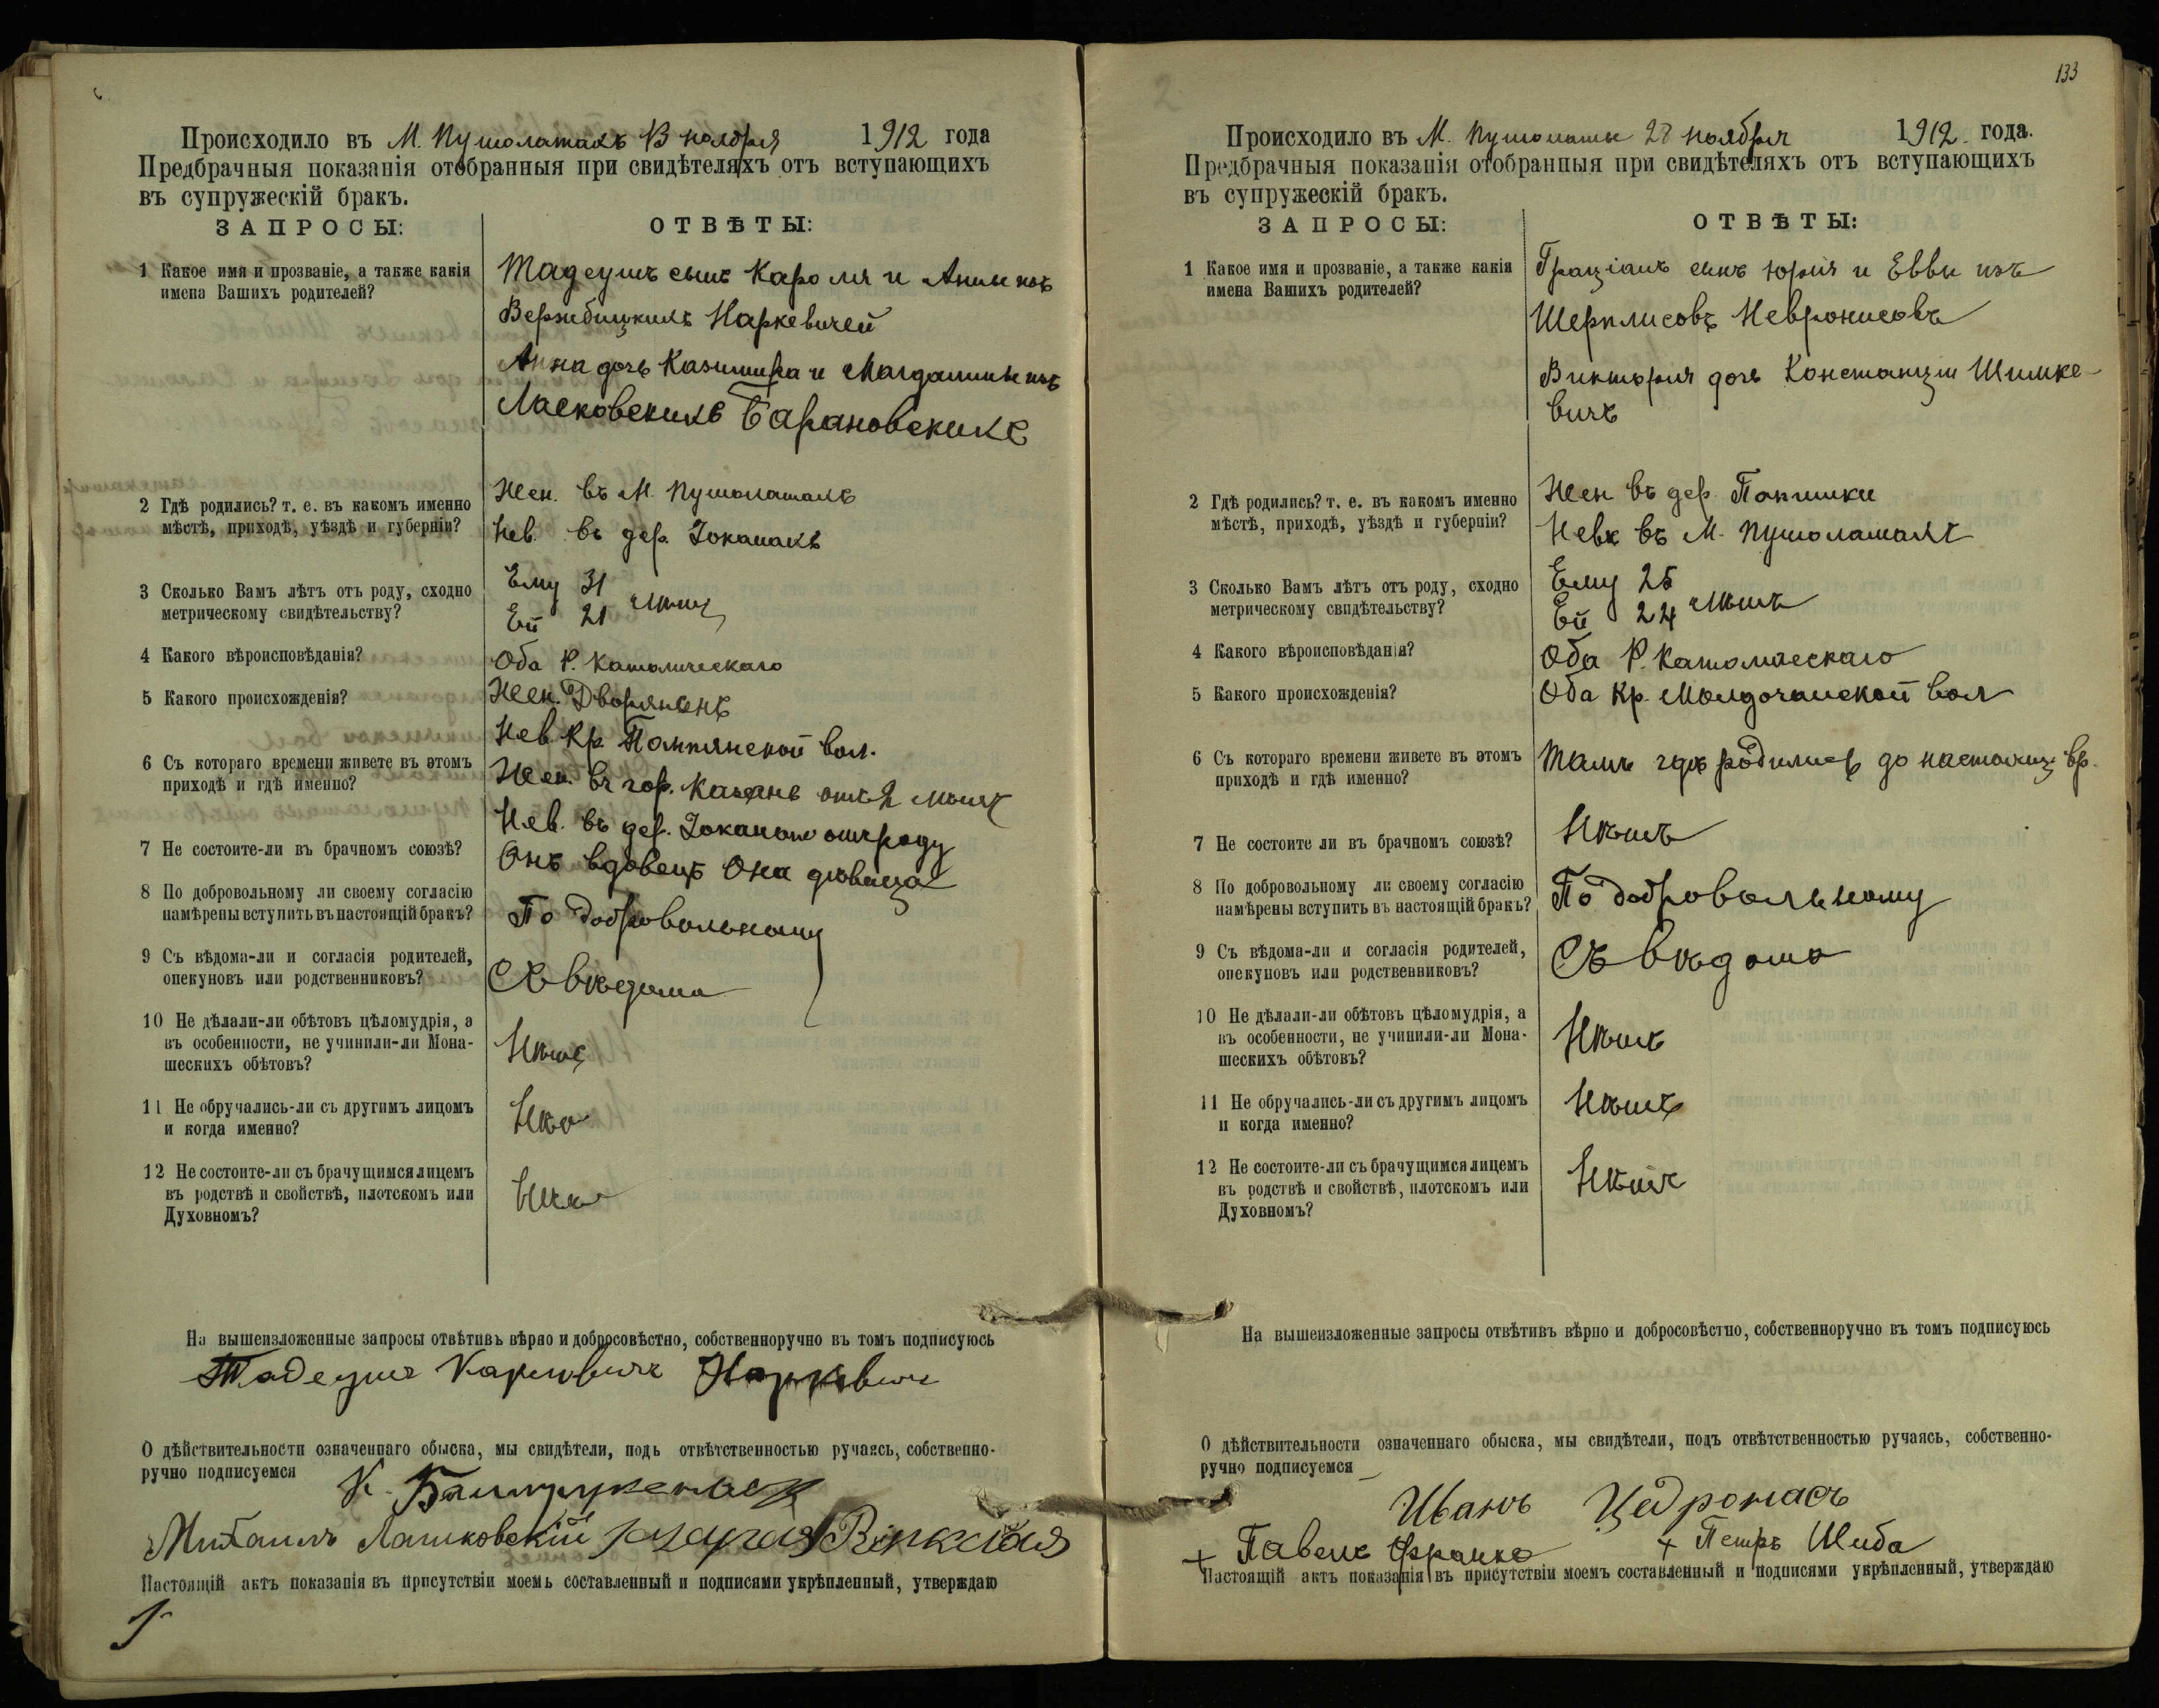 Происходило въ М. Пушолатахъ 13 ноября 1912 года
Предбрачныя показанія отобранныя при свидѣтеляхъ отъ вступающихъ
въ супружескій бракъ.
ЗАПРОСЫ:
ОТВѢТЫ:
1 Какое имя и прозваніе, а также какія
имена Вашихъ родителей?
Тадеушъ сынъ Кароля и Анны изъ
Вержбицкихъ Наркевичей
Анна дочь Казимира и Магдалины изъ
Ласковскихъ Барановскихъ
2 Гдѣ родились? т. е. въ какомъ именно
мѣстѣ, приходѣ, уѣздѣ и губерніи?
Жен. въ М. Пушолатахъ
Нев. въ дер.
3 Сколько Вамъ лѣтъ отъ роду, сходно
метрическому свидѣтельству?
Ему 31
Ей 21 лѣтъ
4 Какого вѣроисповѣданія?
Оба Р. Католическаго
5 Какого происхожденія?
Жен. Дворянинъ
Нев. Кр. Помпянской вол.
6 Съ котораго времени живете въ этомъ
приходѣ и гдѣ именно?
Жен. въ гор. Казань отъ 2 лѣтъ
Нев. въ дер. отъ роду
7 Не состоите-ли въ брачномъ союзѣ?
Онъ вдовецъ Она дѣвица
8 По добровольному ли своему согласію
намѣрены вступить въ настоящій бракъ?
По добровольному
9 Съ вѣдома-ли и согласія родителей,
опекуновъ или родственниковъ?
Съ вѣдома
10 Не дѣлали-ли обѣтовъ цѣломудрія, а
въ особенности, не учинили-ли Мона-
шескихъ обѣтовъ?
Нѣтъ
11 Не обручались-ли съ другимъ лицомъ
и когда именно?
Нѣтъ
12 Не состоите-ли съ брачущимся лицемъ
въ родствѣ и свойствѣ, плотскомъ или
Духовномъ?
Нѣтъ
На вышеизложенные запросы отвѣтивъ вѣрно и добросовѣстно, собственноручно въ томъ подписуюсь
Тадеушъ Карловичъ Наркевичъ
О дѣйствительности означеннаго обыска, мы свидѣтели, подъ отвѣтственностью ручаясь, собственно-
ручно подписуемся К.
Михаилъ Лашковскій
Настоящій актъ показанія въ присутствіи моемъ составленный и подписями укрѣпленный, утверждаю
133
Происходило въ М. Пушолаты 28 ноября 1912 года.
Предбрачныя показанія отобранныя при свидѣтеляхъ отъ вступающихъ
въ супружескій бракъ.
ЗАПРОСЫ:
ОТВѢТЫ:
1 Какое имя и прозваніе, а также какія
имена Вашихъ родителей?
Граціанъ сынъ Юрія и Еввы изъ
Шерплисовъ Невронисовъ
Викторія дочь Констанціи Шимке-
вичъ
2 Гдѣ родились? т. е. въ какомъ именно
мѣстѣ, приходѣ, уѣздѣ и губерніи?
Жен въ дер.
Невѣ въ М. Пушолатахъ
3 Сколько Вамъ лѣтъ отъ роду, сходно
метрическому свидѣтельству?
Ему 25
Ей 24 лѣтъ
4 Какого вѣроисповѣданія?
Оба Р. Католическаго
5 Какого происхожденія?
Оба Кр. вол
6 Съ котораго времени живете въ этомъ
приходѣ и гдѣ именно?
Тамъ гдѣ родились до настоящ. вр.
7 Не состоите ли въ брачномъ союзѣ?
Нѣтъ
8 По добровольному ли своему согласію
намѣрены вступить въ настоящій бракъ?
По добровольному
9 Съ вѣдома-ли и согласія родителей,
опекуновъ или родственниковъ?
Съ вѣдома
10 Не дѣлали-ли обѣтовъ цѣломудрія, а
въ особенности, не учинили-ли Мона-
шескихъ обѣтовъ?
Нѣтъ
11 Не обручались-ли съ другимъ лицомъ
и когда именно?
Нѣтъ
12 Не состоите-ли съ брачущимся лицемъ
въ родствѣ и свойствѣ, плотскомъ или
Духовномъ?
Нѣтъ
На вышеизложенные запросы отвѣтивъ вѣрно и добросовѣстно, собственноручно въ томъ подписуюсь
О дѣйствительности означеннаго обыска, мы свидѣтели, подъ отвѣтственностью ручаясь, собственно-
ручно подписуемся
Иванъ Цедронасъ
+ Павелъ Франко + Петръ Шиба
Настоящій актъ показанія въ присутствіи моемъ составленный и подписями укрѣпленный, утверждаю